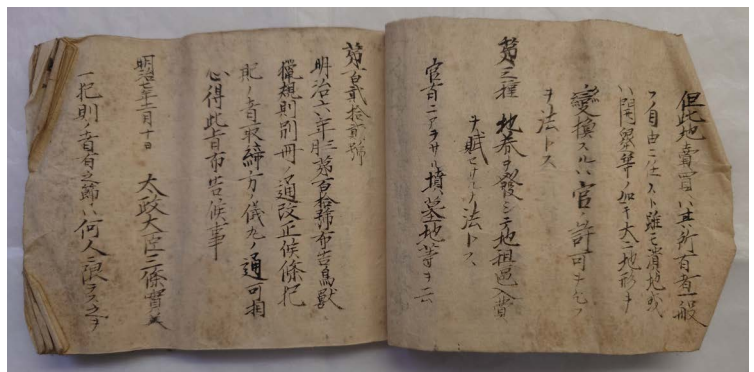 但此地賣買ハ其所有者一般
ノ自由ニ任スト雖モ潰地或
ハ開墾等ノ如キ大ニ地形ヲ
変換スルハ官ノ許可ヲ乞フ
ヲ法トス
第三種 地券ヲ發シテ地租區入費
ヲ賦セサルヲ法トス
官有ニアラサル墳墓地等ヲ云
第百貳拾貳號
明治六年 第百拾號布告鳥獸
獵規則別冊ノ通改正候條犯
則ノ者取締方ノ儀左ノ通可相
心得此旨布告候事
明治七年十一月十日 太政大臣三條實美
一犯則ノ者有之節ハ何人ニ限ラス之ヲ